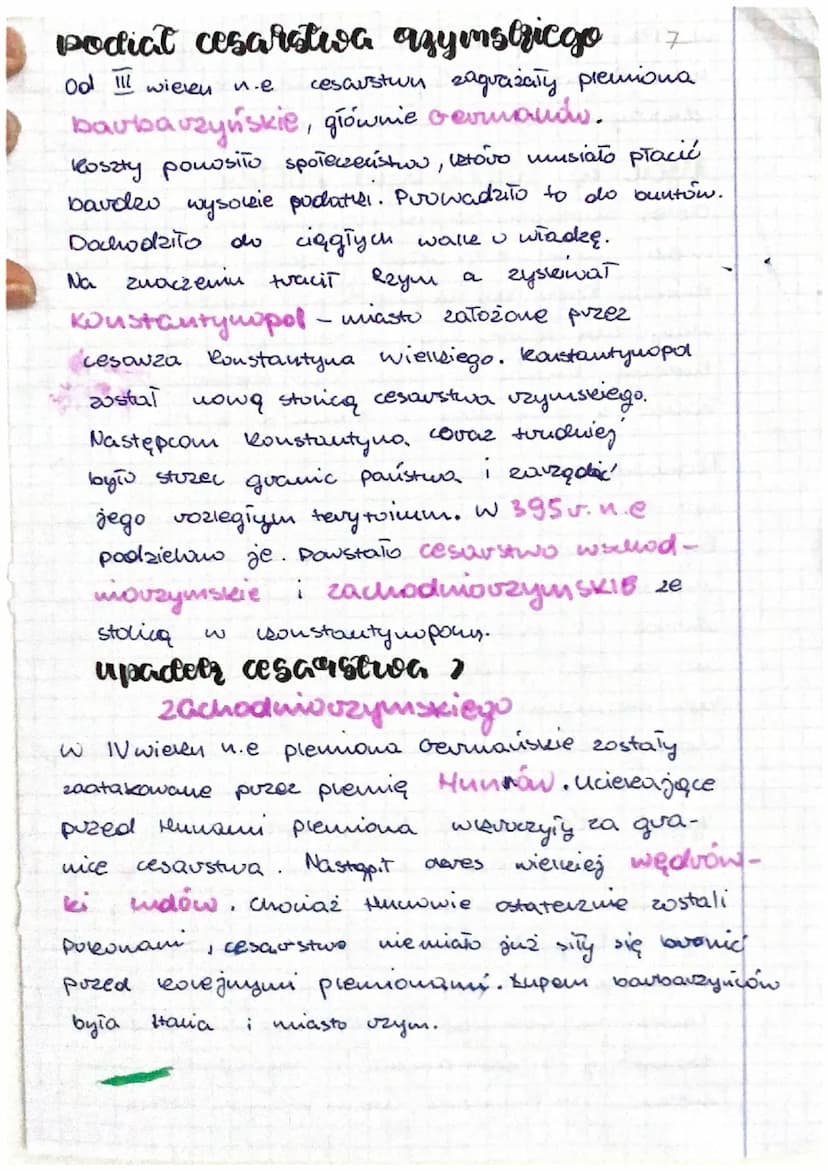 Podział cesarstwa rzymskiego 7
Od III wieku n.e cesarstwu zagrażały plemiona
barbarzyńskie, głównie Germanów.
Koszty ponosiło społeczeństwo, które musiało płacić
bardzo wysokie podatki. Prowadziło to do buntów.
Dochodziło do ciągłych walk o władzę.
Na znaczeniu tracił Rzym a zyskiwał
Konstantynopol - miasto założone przez
cesarza Konstantyna Wielkiego. Konstantynopol
został nową stolicą cesarstwa rzymskiego.
Następcom Konstantyna coraz trudniej
było strzec granic państwa i zarządzać
jego rozległym terytorium. W 395 r. n.e
podzielono je. Powstało cesarstwo wschod-
niorzymskie i zachodniorzymskie ze
stolicą w Konstantynopolu.
Upadek cesarstwa
zachodniorzymskiego
W IV wieku n.e plemiona Germańskie zostały
zaatakowane przez plemię Hunów. Uciekające
przed Hunami plemiona wkroczyły za gra-
nice cesarstwa. Nastąpił okres wielkiej wędrów-
ki ludów. Chociaż Hunowie ostatecznie zostali
pokonani, cesarstwo nie miało już siły się bronić
przed kolejnymi plemionami. Łupem barbarzyńców
była Italia i miasto rzym.